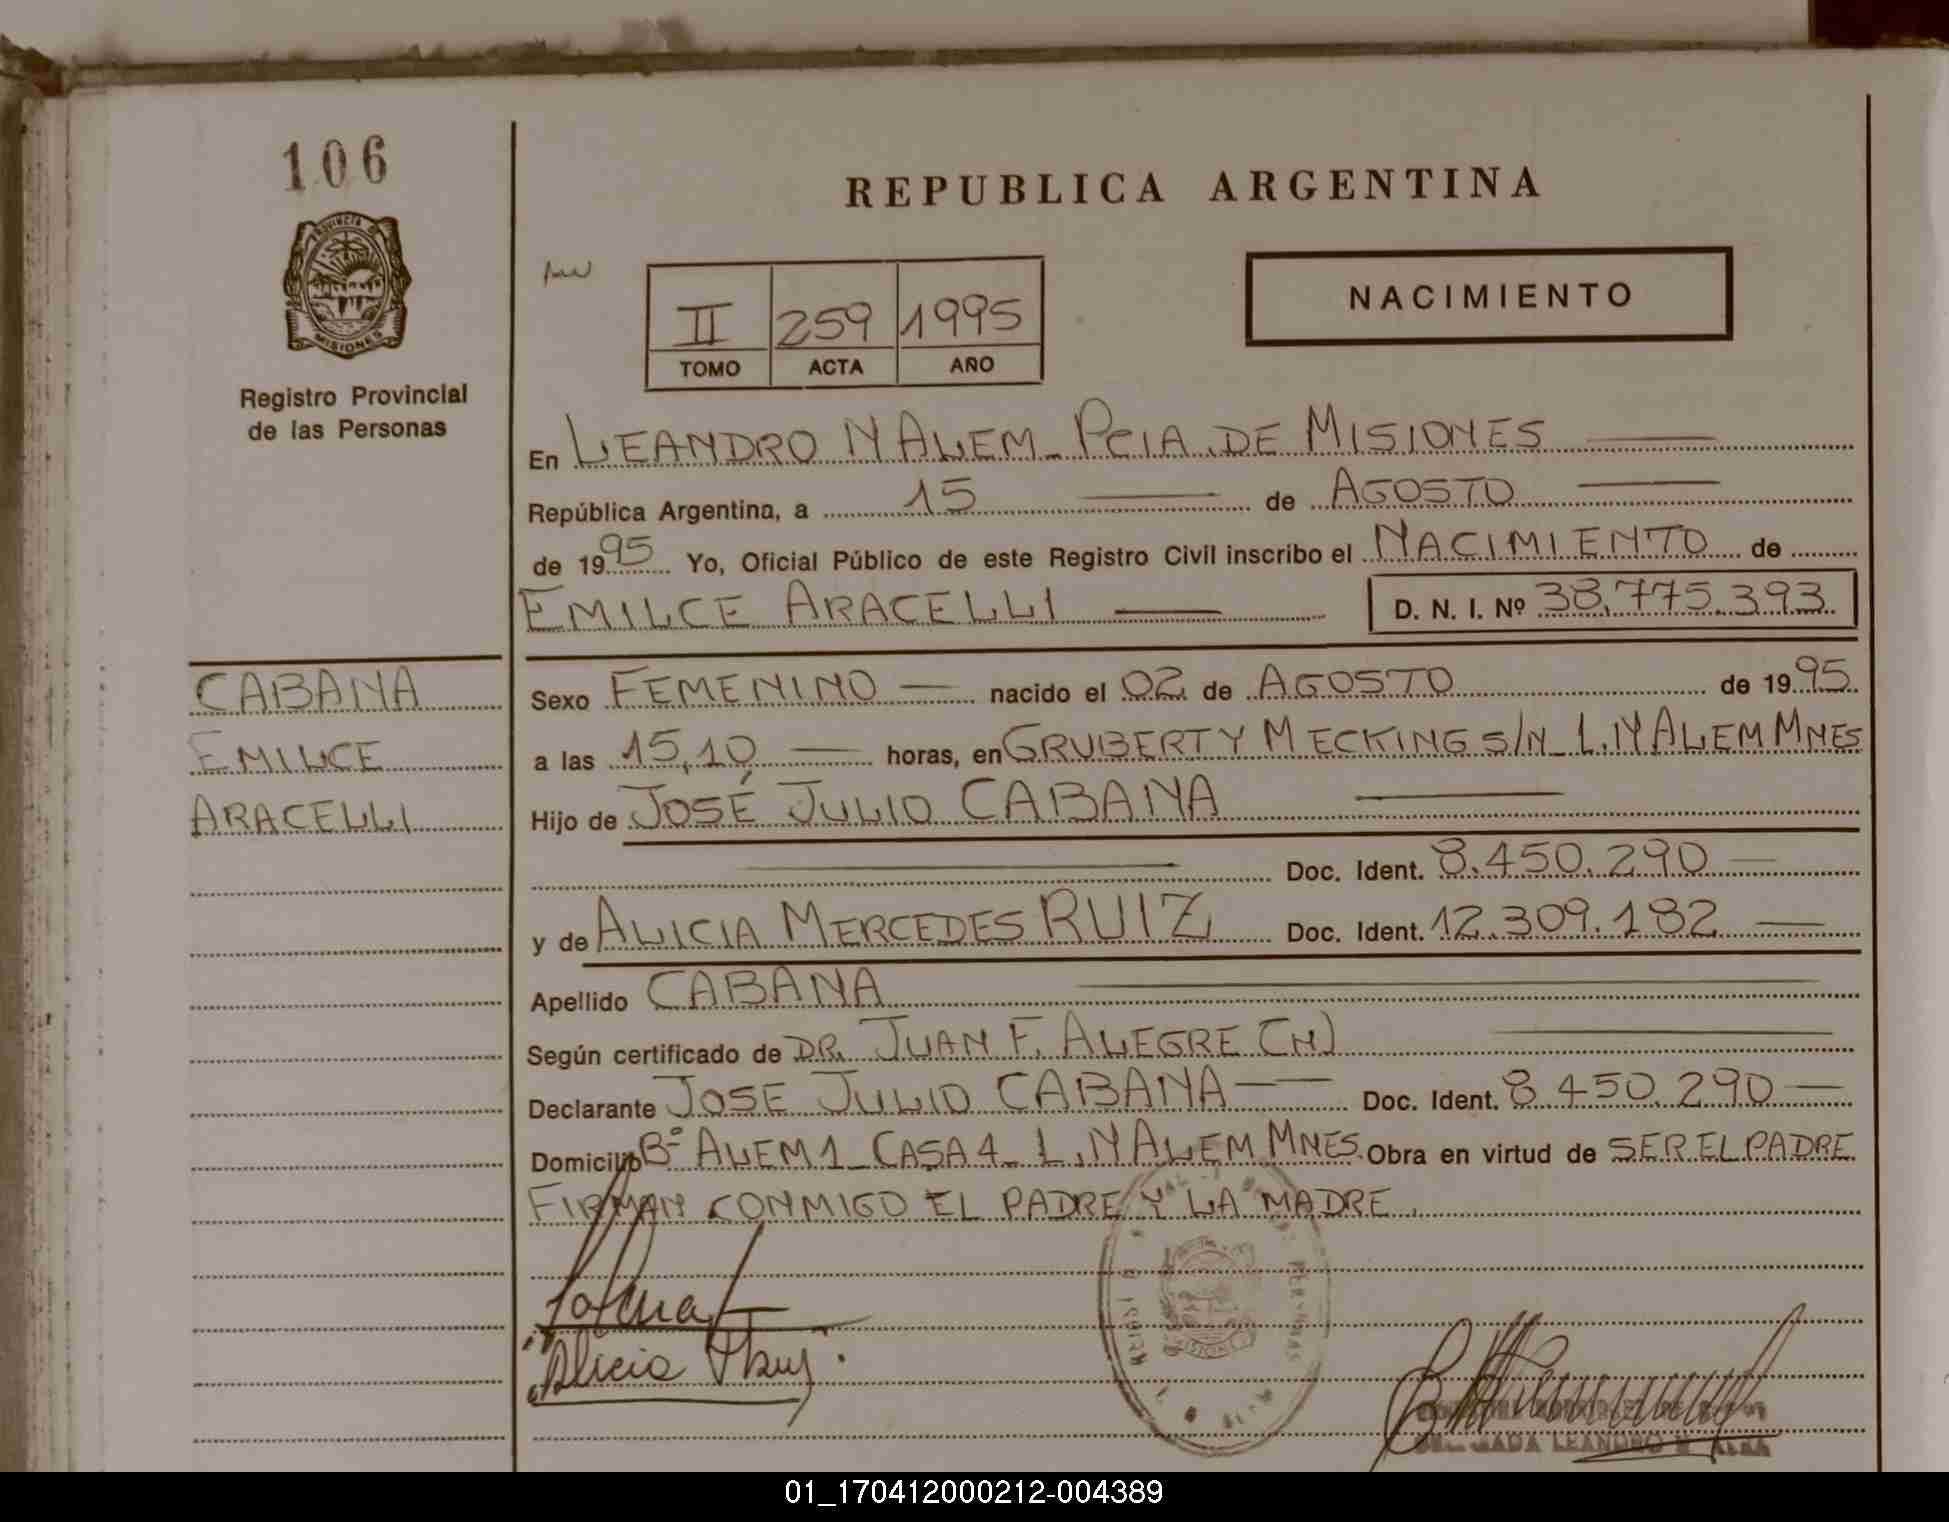 106
REPUBLICA ARGENTINA
PROVINCIA DE
MISIONES
Registro Provincial
de las Personas
II 259 1995
TOMO ACTA AÑO
NACIMIENTO
En LEANDRO N ALEM - PCIA. DE MISIONES
República Argentina, a 15 de AGOSTO
de 1995 Yo, Oficial Público de este Registro Civil inscribo el NACIMIENTO de
EMILCE ARACELLI D. N. I. Nº 38.775.393
CABANA
EMILCE
ARACELLI
Sexo FEMENINO nacido el 02 de AGOSTO de 1995
a las 15,10 horas, en GRUBERT Y MECKING S/N - L. N ALEM MNES
Hijo de JOSÉ JULIO CABANA
Doc. Ident. 8.450.290
y de ALICIA MERCEDES RUIZ Doc. Ident. 12.309.182
Apellido CABANA
Según certificado de DR. JUAN F. ALEGRE (N)
Declarante JOSE JULIO CABANA Doc. Ident. 8.450.290
Domicilio Bº ALEM 1 - CASA 4 - L. N ALEM MNES. Obra en virtud de SER EL PADRE
FIRMAN CONMIGO EL PADRE Y LA MADRE.
Alicia
LEANDRO N.
01_170412000212-004389